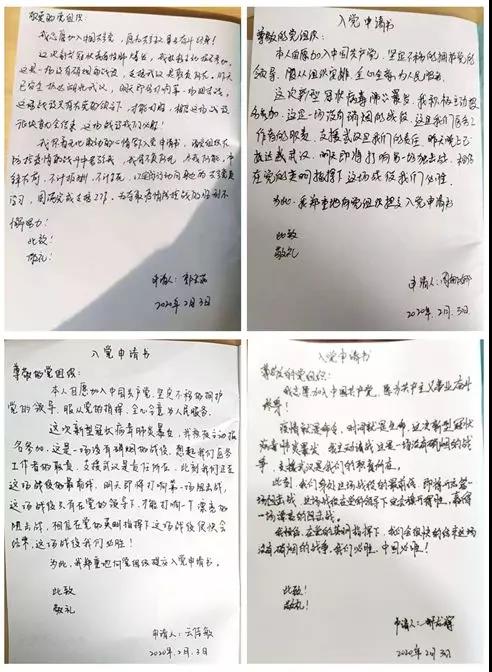 敬爱的党组织:
我志愿加入中国共产党,愿为共产主义事业奋斗终身!
这次新型冠状病毒肺炎爆发,我积极主动报名参加,
这是一场没有硝烟的战役,支援武汉是职责所在,昨天
已安全抵达湖北武汉,明天即将打响第一场阻击战,
这场战役只有在党的领导下,才能打赢,相信这场战役
很快会全结束,这场战役我们必胜!
此致
敬礼!
申请人:
2020年2月3日
入党申请书
尊敬的党组织:
本人自愿加入中国共产党,坚定不移的拥护党的
领导,服从组织安排,全心全意为人民服务。
这次新型冠状病毒肺炎暴发,我积极主动报
名参加,这是一场没有硝烟的战役,这是我们医务工
作者的职责,支援武汉是我们的责任,昨天晚上已
抵达武汉,明天即将打响第一场阻击战,相信
在党的英明指挥下这场战役我们必胜。
为此,我郑重地向党组织提交入党申请书
此致
敬礼
申请人:
2020年2月3日
入党申请书
尊敬的党组织:
本人自愿加入中国共产党,坚定不移的拥护
党的领导,服从党的指挥,全心全意为人民服务。
这次新型冠状病毒肺炎暴发,我积极主动报
名参加,这是一场没有硝烟的战役,想起我们医务
工作者的职责,支援武汉是责任所在,此刻我们正在
这场战役的最前线,明天即将打响第一场阻击战,
这场战役只有在党的领导下,才能打响一个漂亮的
阻击战,相信在党的英明指挥下这场战役很快会
结束,这场战役我们必胜!
为此,我郑重地向党组织提交入党申请书。
此致
敬礼
申请人:云传敏
2020年2月3日
入党申请书
尊敬的党组织:
我志愿加入中国共产党,愿为共产主义事业奋斗
终身!
疫情就是命令,时间就是生命,这次新型冠状
病毒肺炎暴发,我主动请战这是一场没有硝烟的战
争,支援武汉是我们的职责所在。
此刻,我们身处这场战役的最前线,即将打响第一
场阻击战,这场战役在党的领导下定会旗开得胜,赢得
一场漂亮的阻击战。
我相信,在党的英明指挥下,我们会很快的结束这场
没有硝烟的战争,我们必胜,中国必胜!
此致!
敬礼!
申请人:
2020年2月3日